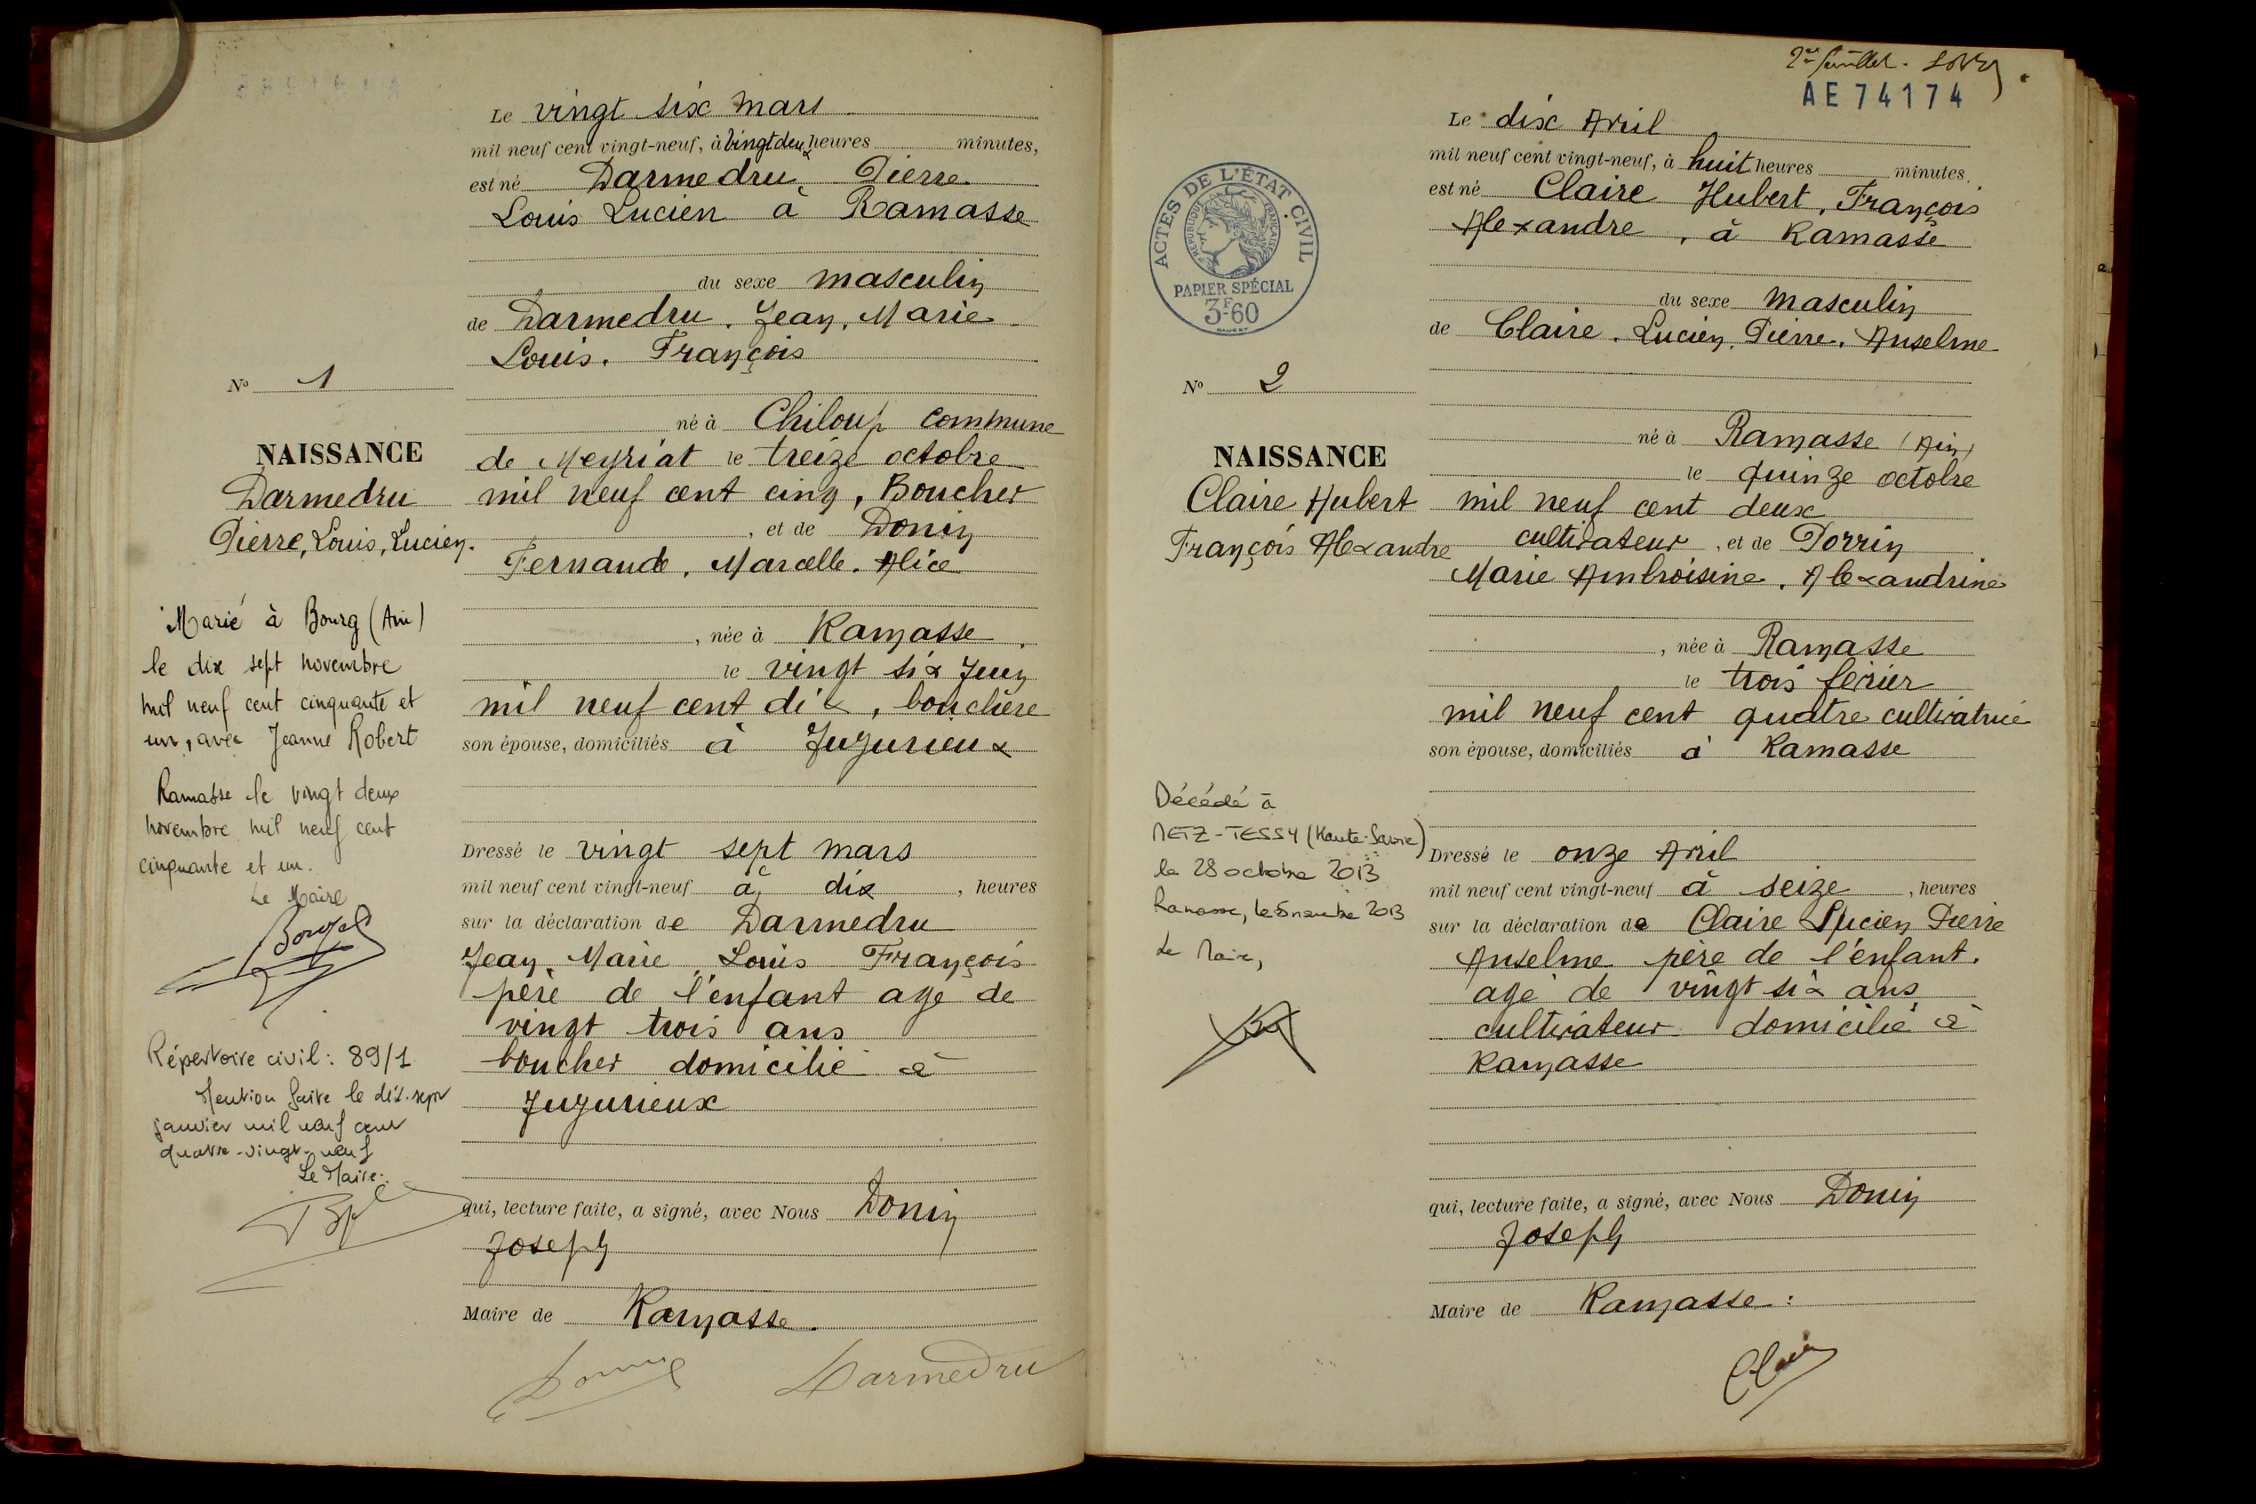 Le vingt six mars
mil neuf cent vingt-neuf, à vingt deux heures minutes,
est né Darmedru Pierre
Louis Lucien à Ramasse
du sexe masculin
de Darmedru. Jean, Marie
Louis. François
né à Chiloup commune
de Meyriat le treize octobre
mil neuf cent cinq, Boucher
, et de Donin
Fernande, Marcelle. Alice
, née à Ramasse
le vingt six Juin
mil neuf cent dix, bouchère
son épouse, domiciliés à Jujurieux
Dressé le vingt sept mars
mil neuf cent vingt-neuf à dix , heures
sur la déclaration de Darmedru
Jean Marie Louis François
père de l'enfant age de
vingt trois ans
boucher domicilié à
Jujurieux
qui, lecture faite, a signé, avec Nous Donin
Joseph
Maire de Ramasse.
Darmedru
N° 1
NAISSANCE
Darmedru
Pierre, Louis, Lucien.
Marié à Bourg (Ain)
le dix sept novembre
mil neuf cent cinquante et
un, avec Jeanne Robert
Ramasse le vingt deux
novembre mil neuf cent
cinquante et un.
Le Maire
Répertoire civil : 89/1
Mention faite le dix-sept
janvier mil neuf cent
quatre-vingt-neuf
Le Maire.
2me feuillet.
AE 74174
ACTES DE L'ÉTAT CIVIL
RÉPUBLIQUE FRANÇAISE
PAPIER SPÉCIAL
3F60
Le dix Avril
mil neuf cent vingt-neuf, à huit heures minutes.
est né Claire Hubert, François
Alexandre, à Ramasse
du sexe masculin
de Claire. Lucien. Pierre. Anselme
né à Ramasse (Ain)
le quinze octobre
mil neuf cent deux
cultivateur , et de Perrin
Marie Ambroisine. Alexandrine
, née à Ramasse
le trois février
mil neuf cent quatre cultivatrice
son épouse, domiciliés à Ramasse
Dressé le onze Avril
mil neuf cent vingt-neuf à seize , heures
sur la déclaration de Claire Lucien Pierre
Anselme père de l'enfant.
age de vingt six ans
cultivateur domicilié à
Ramasse
qui, lecture faite, a signé, avec Nous Donin
Joseph
Maire de Ramasse :
Claire
N° 2
NAISSANCE
Claire Hubert
François Alexandre
Décédé à
METZ-TESSY (Haute-Savoie)
le 28 octobre 2013
Ramasse, le 5 novembre 2013
Le Maire,